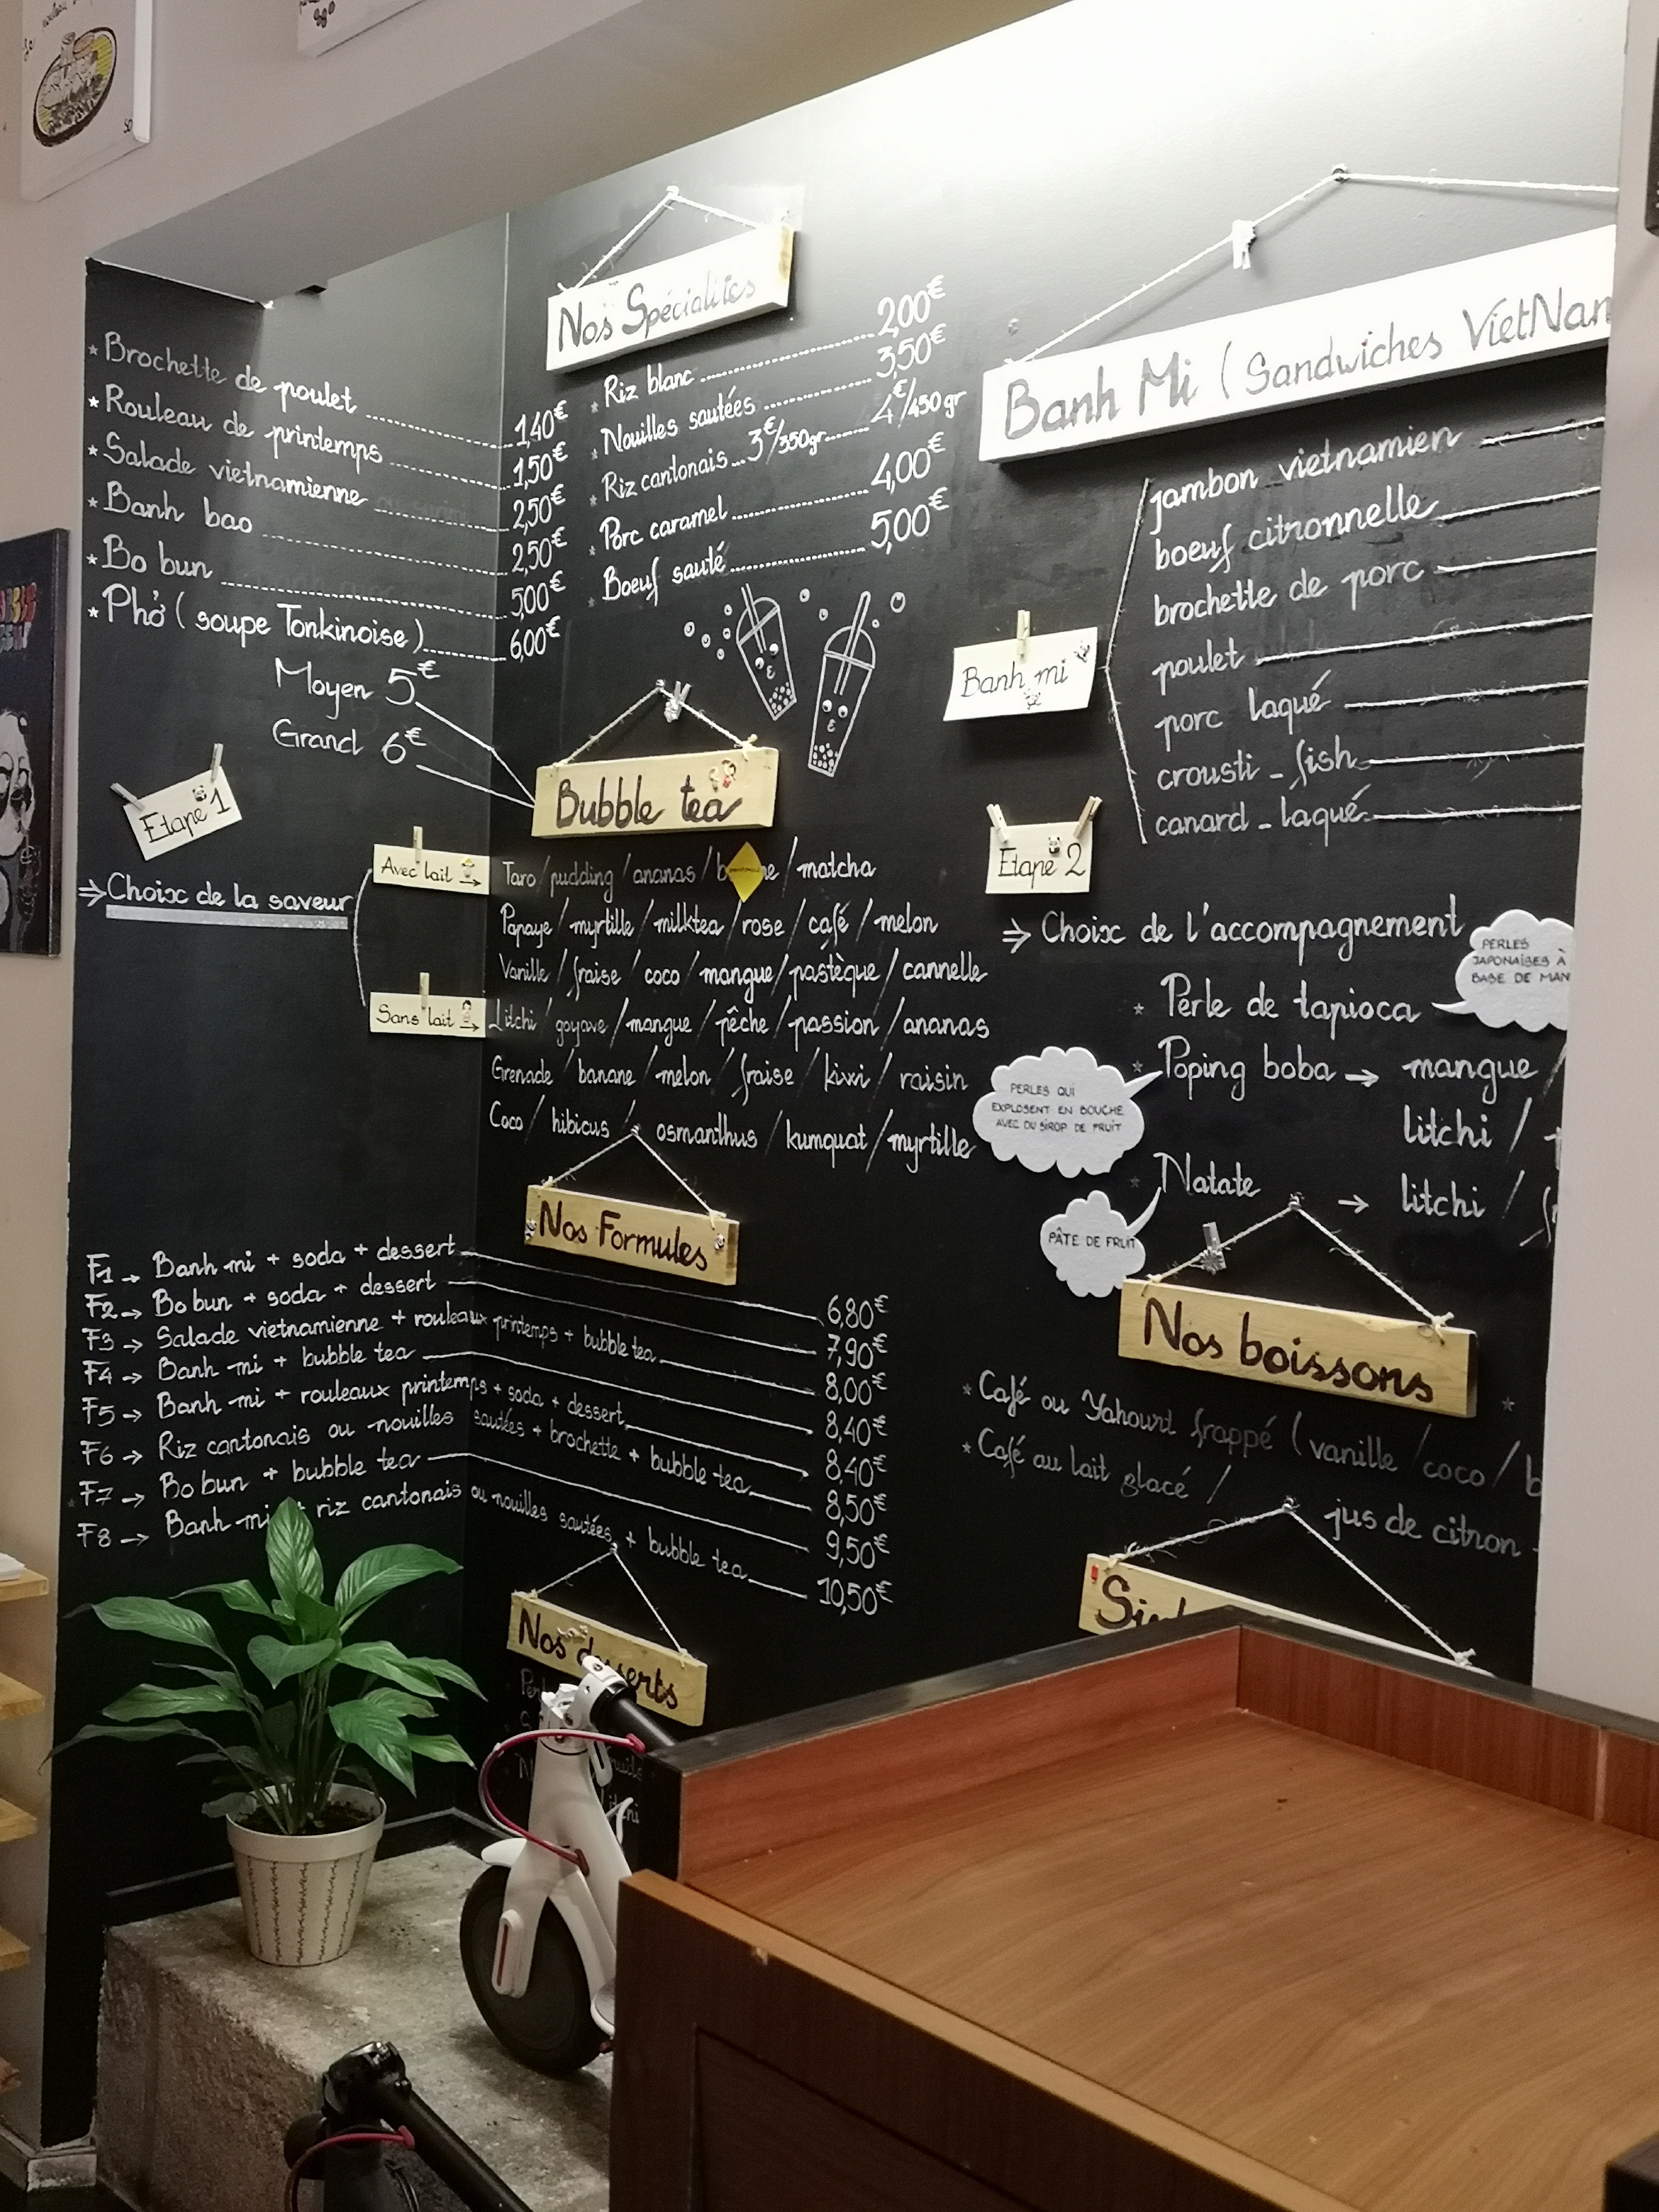 Nos Spécialités
* Brochette de poulet 1,40€
* Rouleau de printemps 1,50€
* Salade vietnamienne 2,50€
* Banh bao 2,50€
* Bo bun 5,00€
* Phở ( soupe Tonkinoise ) 6,00€
* Riz blanc 2,00€
* Nouilles sautées 3,50€
* Riz cantonais 3€/350gr 4€/450gr
* Porc caramel 4,00€
* Boeuf sauté 5,00€
Banh Mi ( Sandwiches VietNam
Banh mi
jambon vietnamien
boeuf citronnelle
brochette de porc
poulet
porc laqué
crousti - fish
canard - laqué
Bubble tea
Moyen 5€
Grand 6€
Etape 1
⇒ Choix de la saveur
Avec lait →
Taro / pudding / ananas / / matcha
Papaye / myrtille / milktea / rose / café / melon
Vanille / fraise / coco / mangue / pastèque / cannelle
Sans lait →
Litchi / goyave / mangue / pêche / passion / ananas
Grenade / banane / melon / fraise / kiwi / raisin
Coco / hibicus / osmanthus / kumquat / myrtille
Etape 2
⇒ Choix de l'accompagnement
* Perle de tapioca
PERLES
JAPONAISES À
BASE DE MAN
* Poping boba → mangue /
litchi /
PERLES QUI
EXPLOSENT EN BOUCHE
AVEC DU SIROP DE FRUIT
* Natate → litchi /
PÂTE DE FRUIT
Nos Formules
F1 → Banh mi + soda + dessert 6,80€
F2 → Bo bun + soda + dessert 7,90€
F3 → Salade vietnamienne + rouleaux printemps + bubble tea 8,00€
F4 → Banh mi + bubble tea 8,40€
F5 → Banh mi + rouleaux printemps + soda + dessert 8,40€
F6 → Riz cantonais ou nouilles sautées + brochette + bubble tea 8,50€
F7 → Bo bun + bubble tea 9,50€
F8 → Banh mi + riz cantonais ou nouilles sautées + bubble tea 10,50€
Nos boissons
* Café ou Yahourt frappé ( vanille / coco / b
* Café au lait glacé / jus de citron
Nos desserts